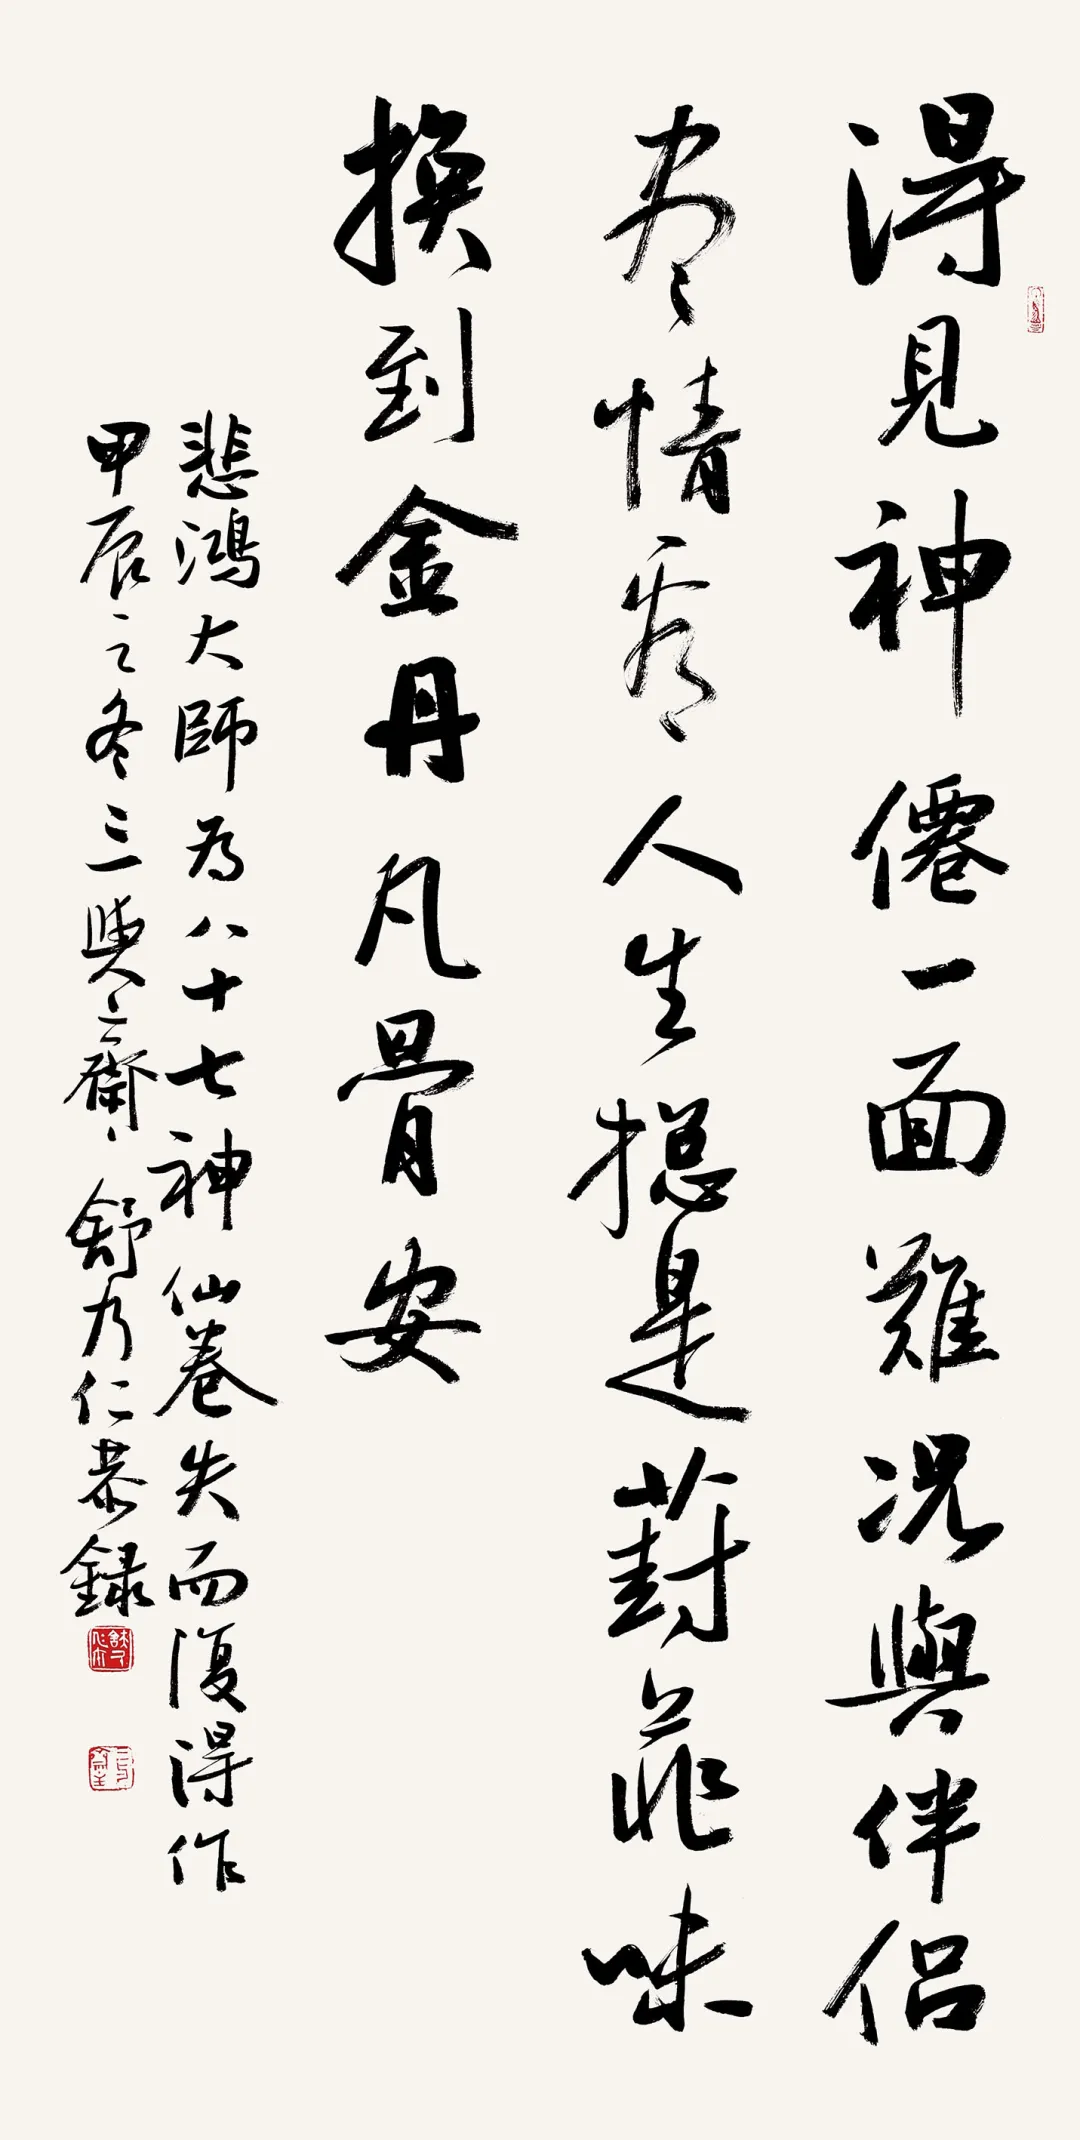 得見神僊一面難況與伴侶
尽情看人生揔是葑菲味
換到金丹凡骨安
悲鴻大師為八十七神仙卷失而復得作
甲辰之冬三與之齋舒乃仁恭録